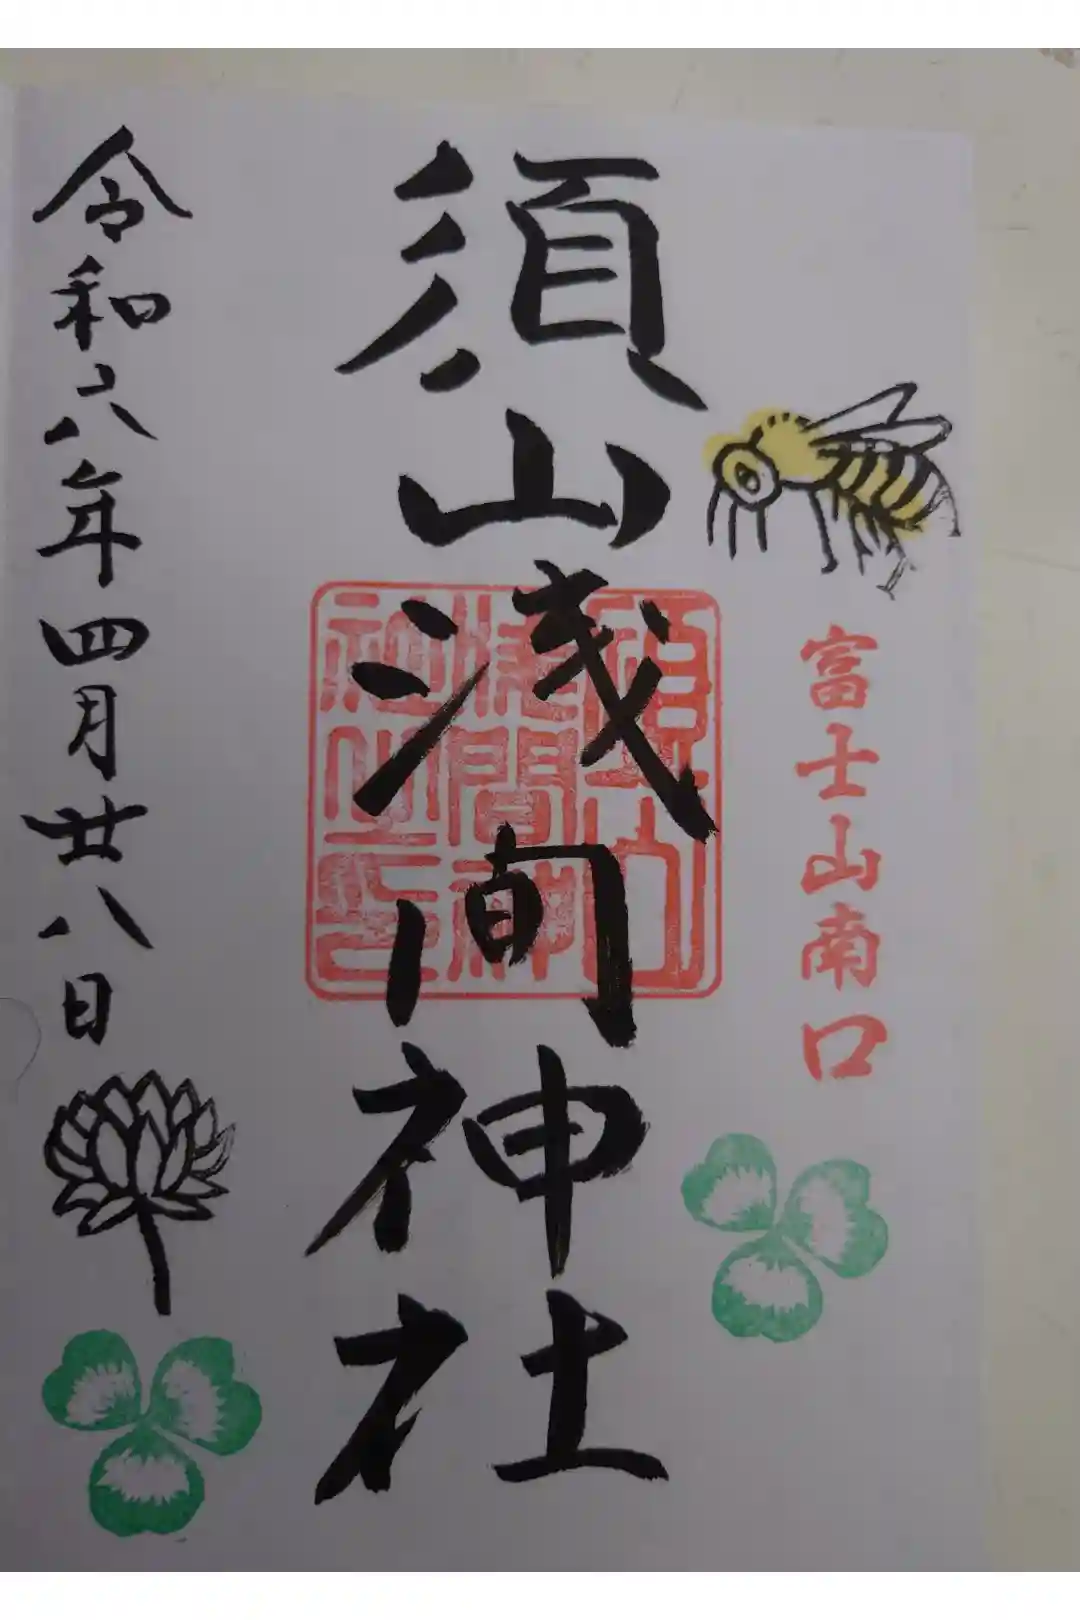 富士山南口
須山浅間神社
須山
浅間神
社之印
令和六年四月廿八日